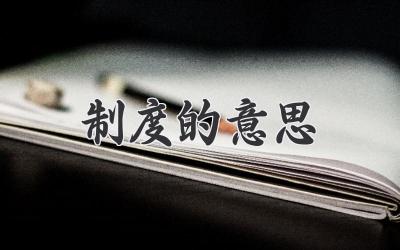 制度的意思